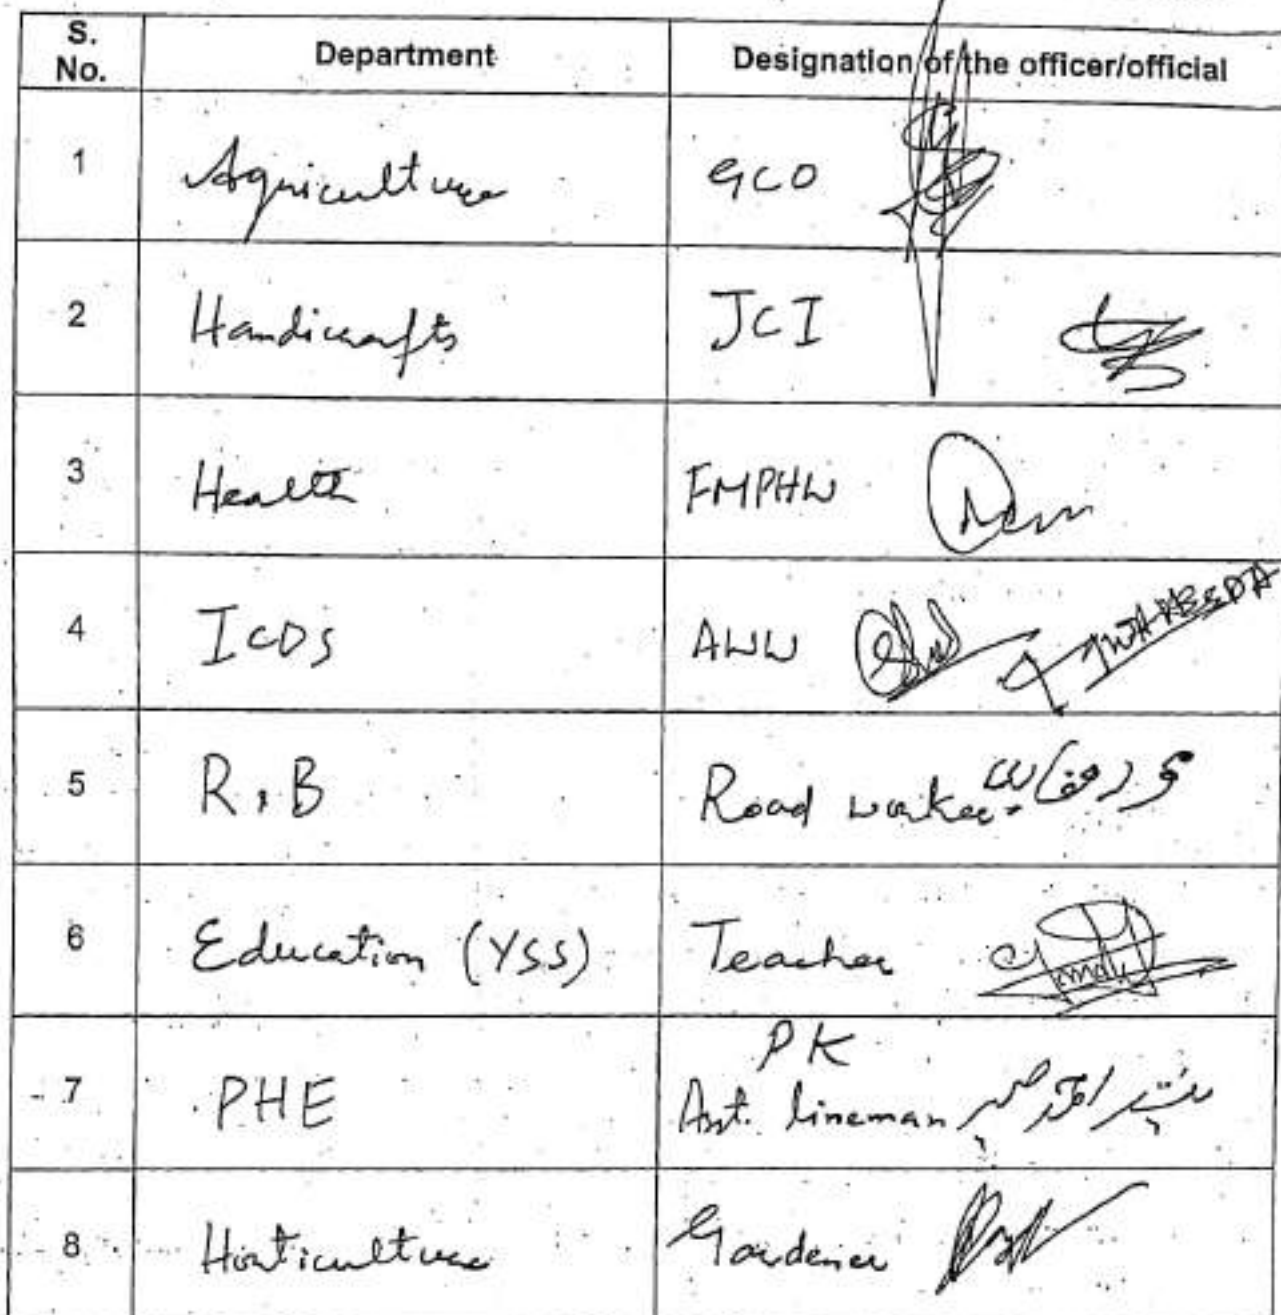 S. No. Department Designation of the officer/official
1 Agriculture GCO
2 Handicrafts JCI
3 Health FMPHW
4 ICDS AWW
5 R&B Road worker
6 Education (YSS) Teacher
PK
7 PHE Asst. lineman
8 Horticulture Gardener